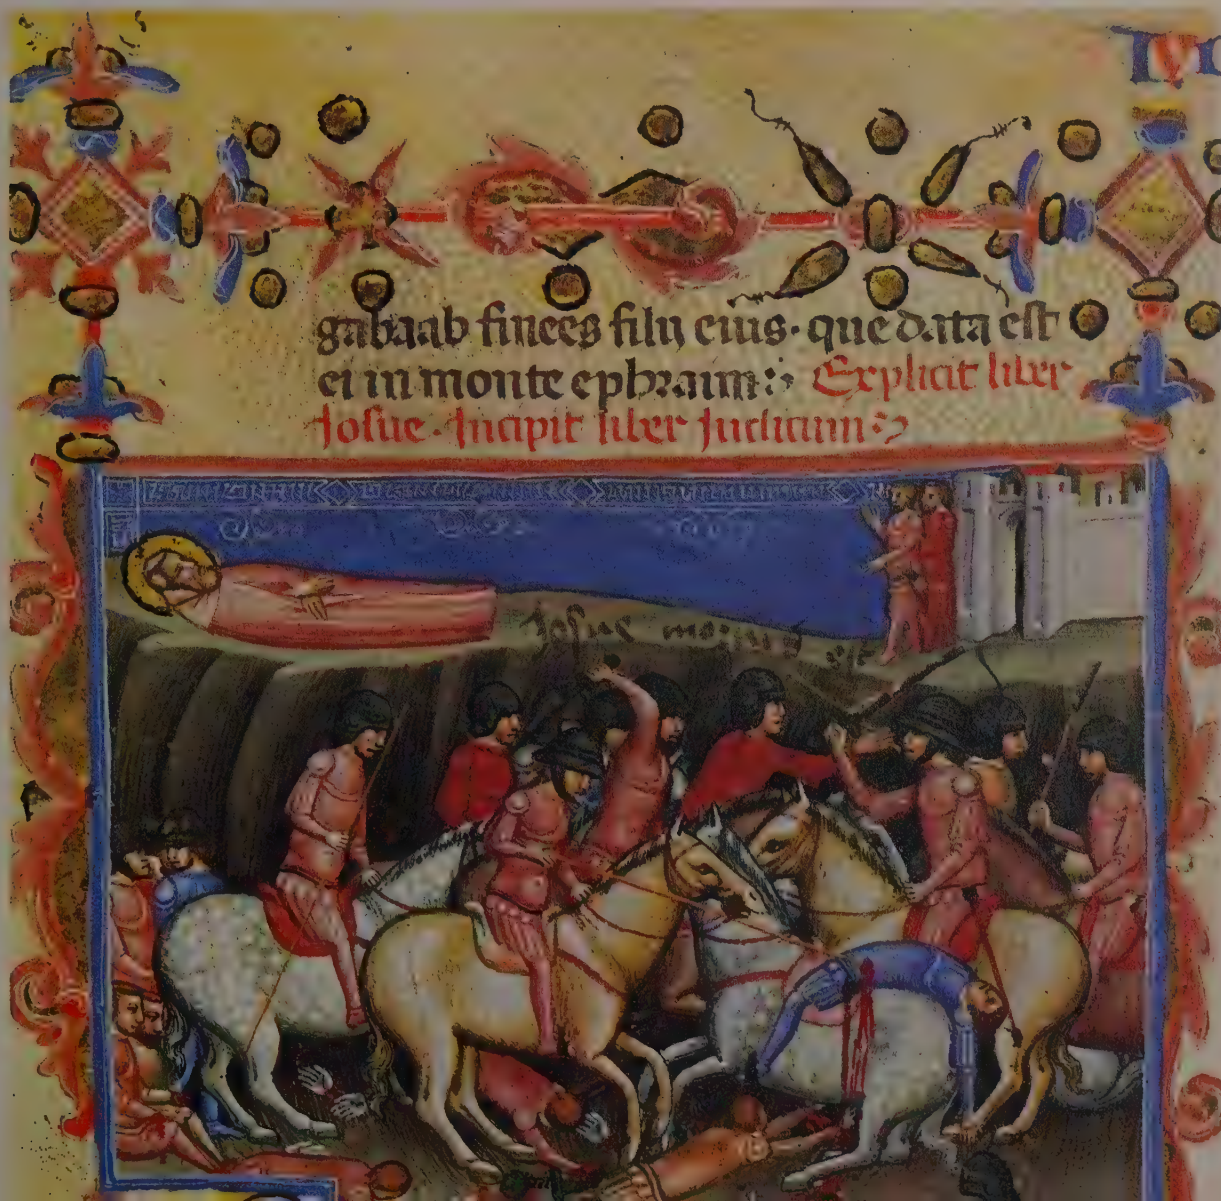 gabaab finees filij eius· que data est
ei in monte ephraim: Explicit liber
Josue· Incipit liber Judicum:
Josue